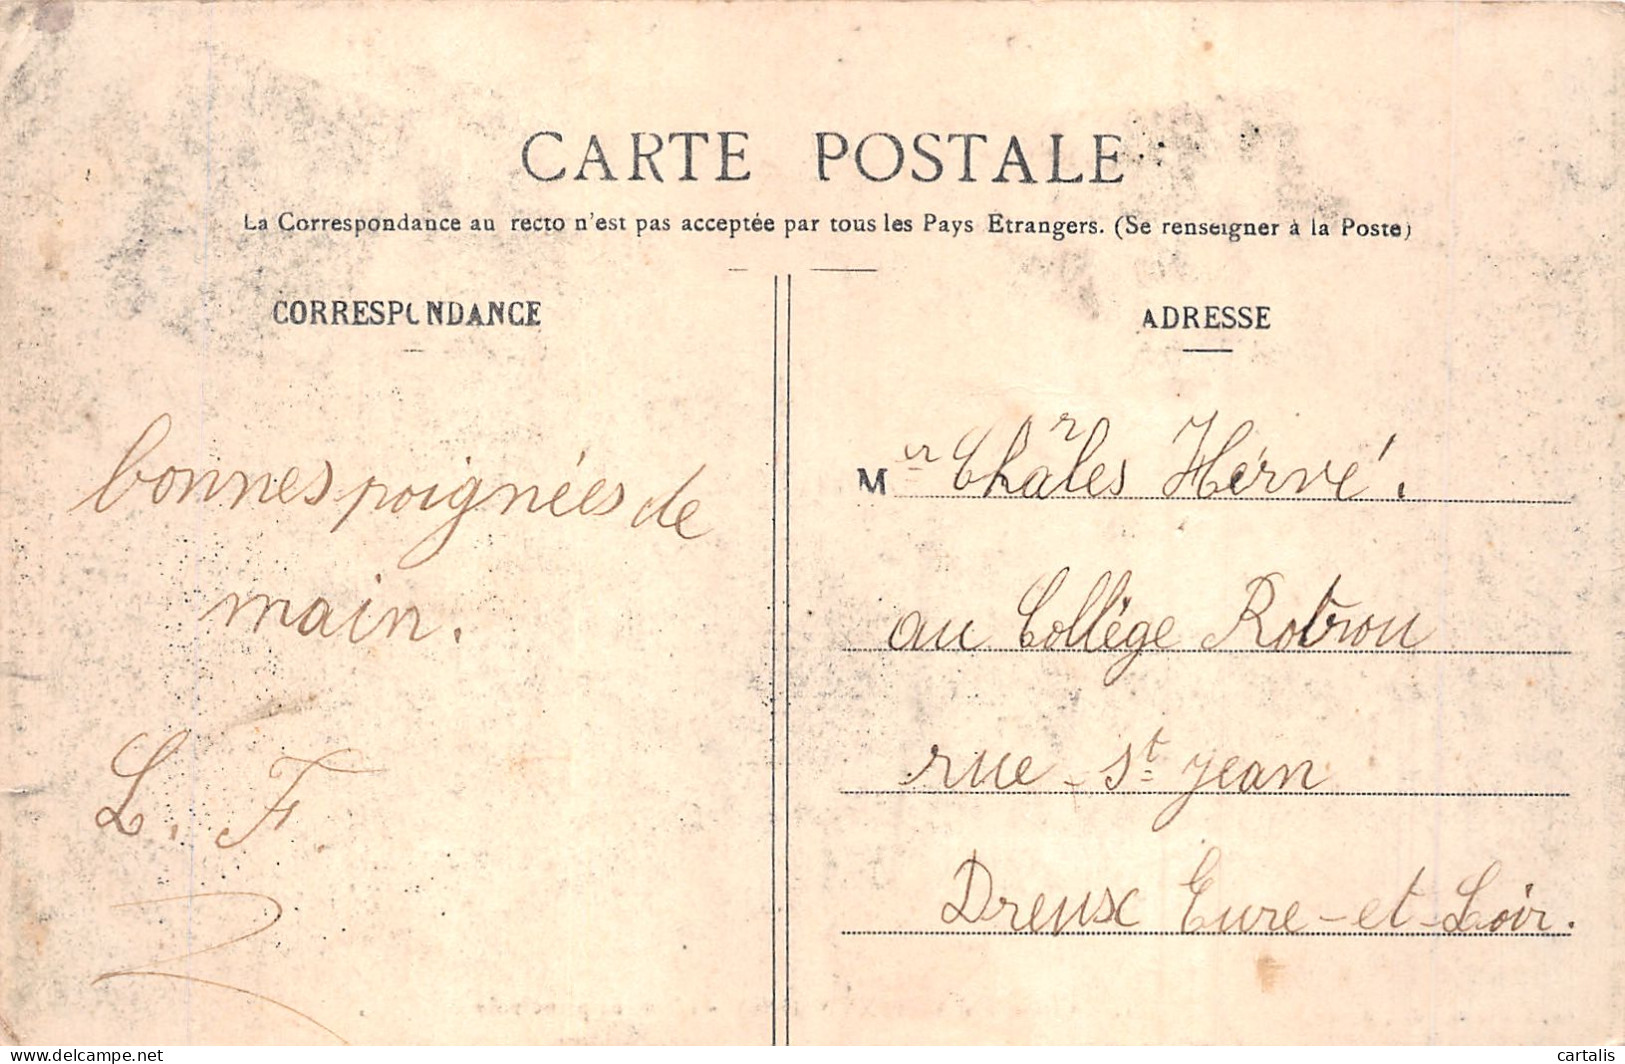 CARTE POSTALE
La Correspondance au recto n'est pas acceptée par tous les Pays Etrangers. (Se renseigner à la Poste)
CORRESPONDANCE
bonnes poignées de
main.
L. F.
ADRESSE
Mr Charles Hervé.
au Collège Rotrou
rue - St Jean
Dreux Eure-et-Loir.
www.delcampe.net
cartalis